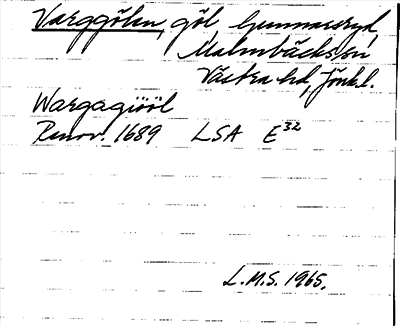 Varggölen, göl Gunnarsryd,
Malmbäcks sn
Västra hd, Jönk.l.
Wargagiööl
Renov. 1689 LSA E32
L.M.S. 1965.